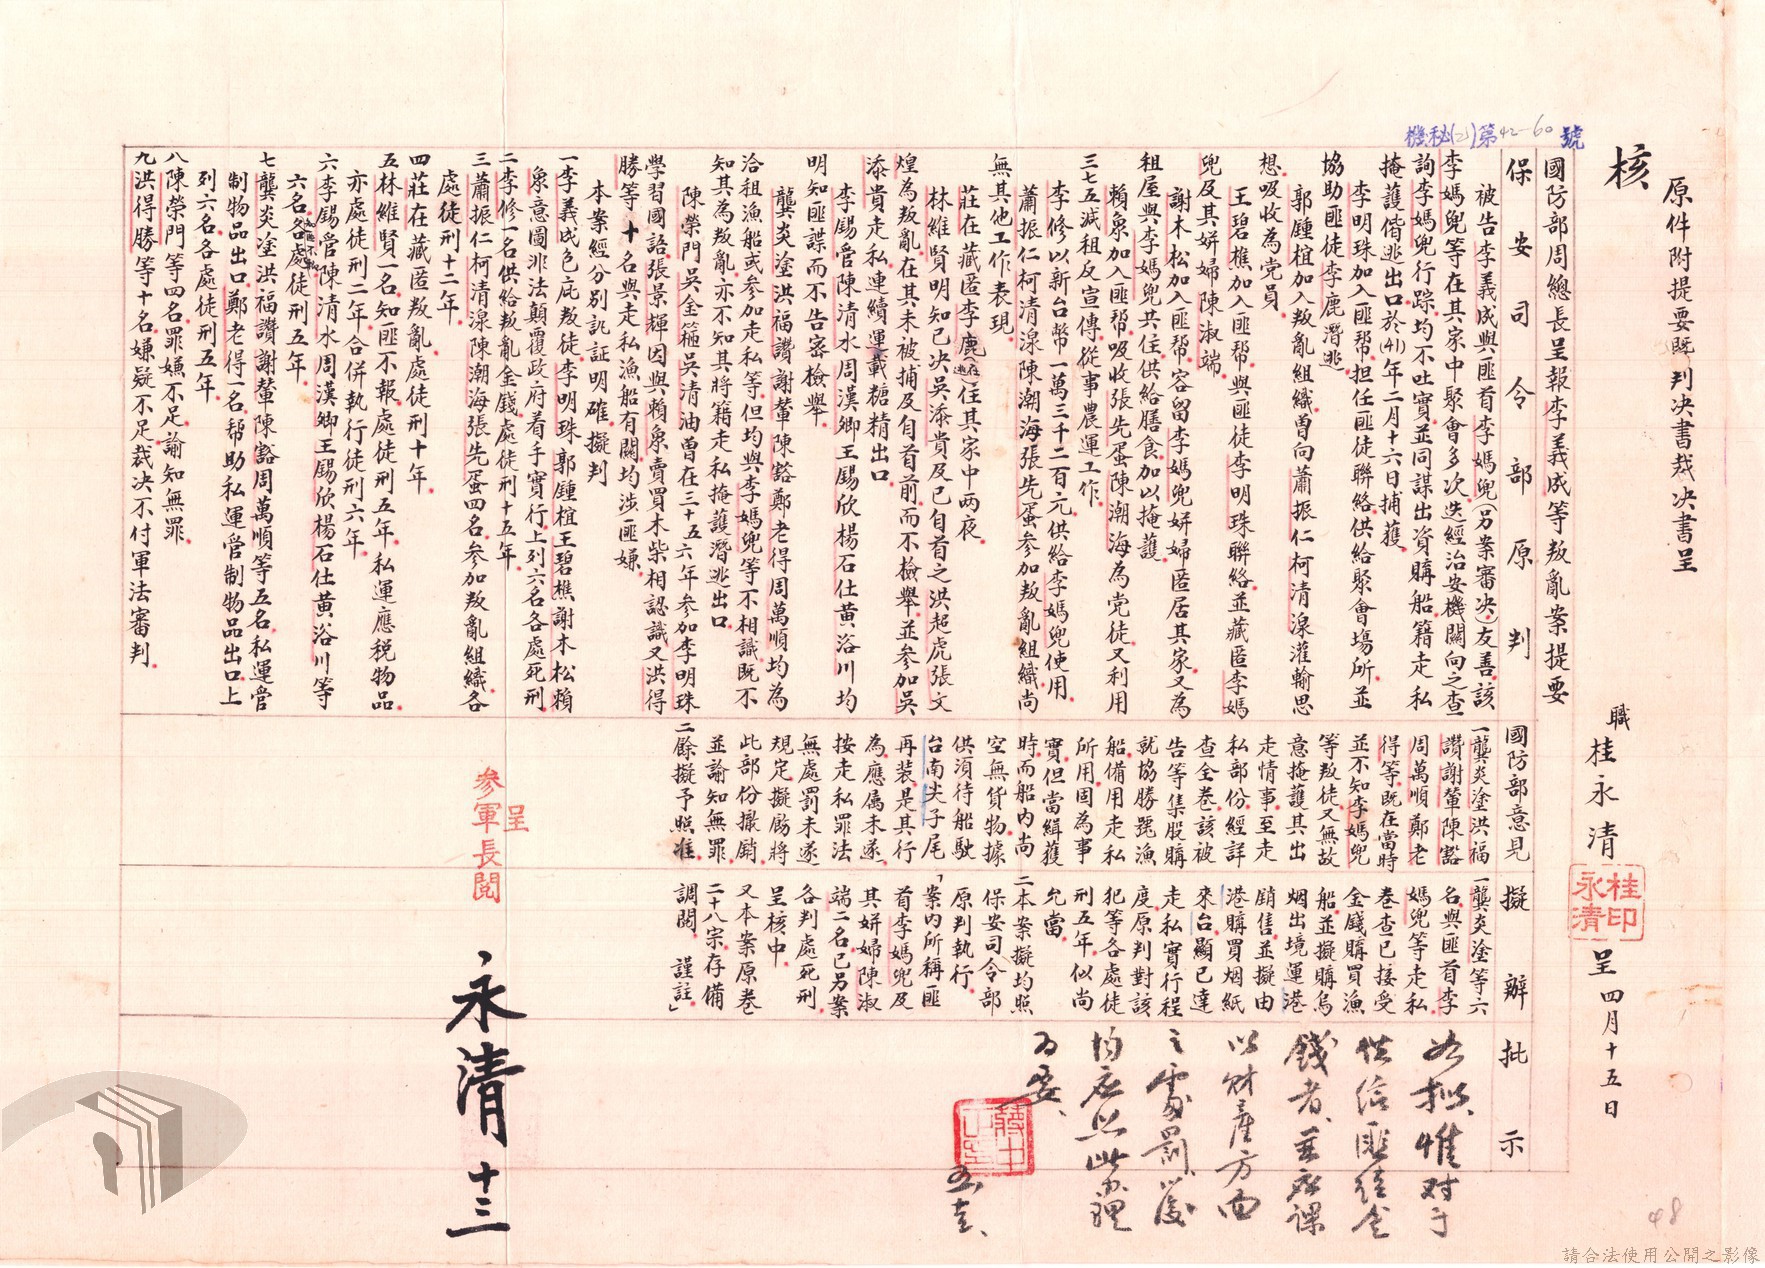 機秘(乙)第42-60號
原件附提要既判決書裁決書呈
核
職
桂永清
桂永清印
呈 四月十五日
國防部周總長呈報李義成等叛亂案提要
保安司令部原判
被告李義成與匪首李媽兜(另案審決)友善該
李媽兜等在其家中聚會多次迭經治安機關向之查
詢李媽兜行踪均不吐實並同謀出資購船籍走私
掩護偕逃出口於(41)年二月十六日捕獲
李明珠加入匪幫担任匪徒聯絡供給聚會場所並
協助匪徒李鹿潛逃
郭鍾楦加入叛亂組織曾向蕭振仁柯清湶灌輸思
想吸收為党員
王碧樵加入匪幫與匪徒李明珠聯絡並藏匿李媽
兜及其姘婦陳淑端
謝木松加入匪幫容留李媽兜姘婦匿居其家又為
租屋與李媽兜共住供給膳食加以掩護
賴象加入匪幫吸收張先蛋陳潮海為党徒又利用
三七五減租反宣傳從事農運工作
李修以新台幣一萬三千二百元供給李媽兜使用
蕭振仁柯清湶陳潮海張先蛋參加叛亂組織尚
無其他工作表現
莊在藏匿李鹿(在逃)住其家中兩夜
林維賢明知已决吳添貴及已自首之洪起虎張文
煌為叛亂在其未被捕及自首前而不檢舉並參加吳
添貴走私連續運載糖精出口
李錫管陳清水周漢卿王錫欣楊石仕黃浴川均
明知匪諜而不告密檢舉
龔炎塗洪福讚謝輦陳豁鄭老得周萬順均為
洽租漁船或參加走私等但均與李媽兜等不相識既不
知其為叛亂亦不知其將籍走私掩護潛逃出口
陳榮門吳金箍吳清油曾在三十五六年參加李明珠
學習國語張景輝因與賴象賣買木柴相認識又洪得
勝等十名與走私漁船有關均涉匪嫌
本案經分別訊証明確擬判
一李義成包庇叛徒李明珠郭鍾楦王碧樵謝木松賴
象意圖非法顛覆政府着手實行上列六名各處死刑
二李修一名供給叛亂金錢處徒刑十五年
三蕭振仁柯清湶陳潮海張先蛋四名參加叛亂組織各
處徒刑十二年
四莊在藏匿叛亂處徒刑十年
五林維賢一名知匪不報處徒刑五年私運應稅物品
亦處徒刑二年合併執行徒刑六年
六李錫管陳清水周漢卿王錫欣楊石仕黃浴川等
六名知匪不報各處徒刑五年
七龔炎塗洪福讚謝輦陳豁周萬順等五名私運管
制物品出口鄭老得一名幫助私運管制物品出口上
列六名各處徒刑五年
八陳榮門等四名罪嫌不足諭知無罪
九洪得勝等十名嫌疑不足裁決不付軍法審判
國防部意見
一龔炎塗洪福
讚謝輦陳豁
周萬順鄭老
得等既在當時
並不知李媽兜
等叛徒又無故
意掩護其出
走情事至走
私部份經詳
查全卷該被
告等集股購
就協勝號漁
船備用走私
所用固為事
實但當緝獲
時而船內尚
空無貨物據
供須待船駛
台南尖子尾
再裝是其行
為應屬未遂
按走私罪法
無處罰未遂
規定擬飭將
此部份撤銷
並諭知無罪
二餘擬予照准
擬辦
一龔炎塗等六
名與匪首李
媽兜等走私
卷查已接受
金錢購買漁
船並擬購烏
烟出境運港
銷售並擬由
港購買烟紙
來台顯已達
走私實行程
度原判對該
犯等各處徒
刑五年似尚
允當
二本案擬均照
保安司令部
原判執行
「案內所稱匪
首李媽兜及
其姘婦陳淑
端二名已另案
各判處死刑
呈核中
又本案原卷
二十八宗存備
調閱 謹註」
批示
如擬惟對于
供給匪徒金
錢者並應課
以財產方面
之處罰以後
均應照此辦理
為要
蔣中正印
呈
參軍長閱
永清 十三
48
請合法使用公開之影像